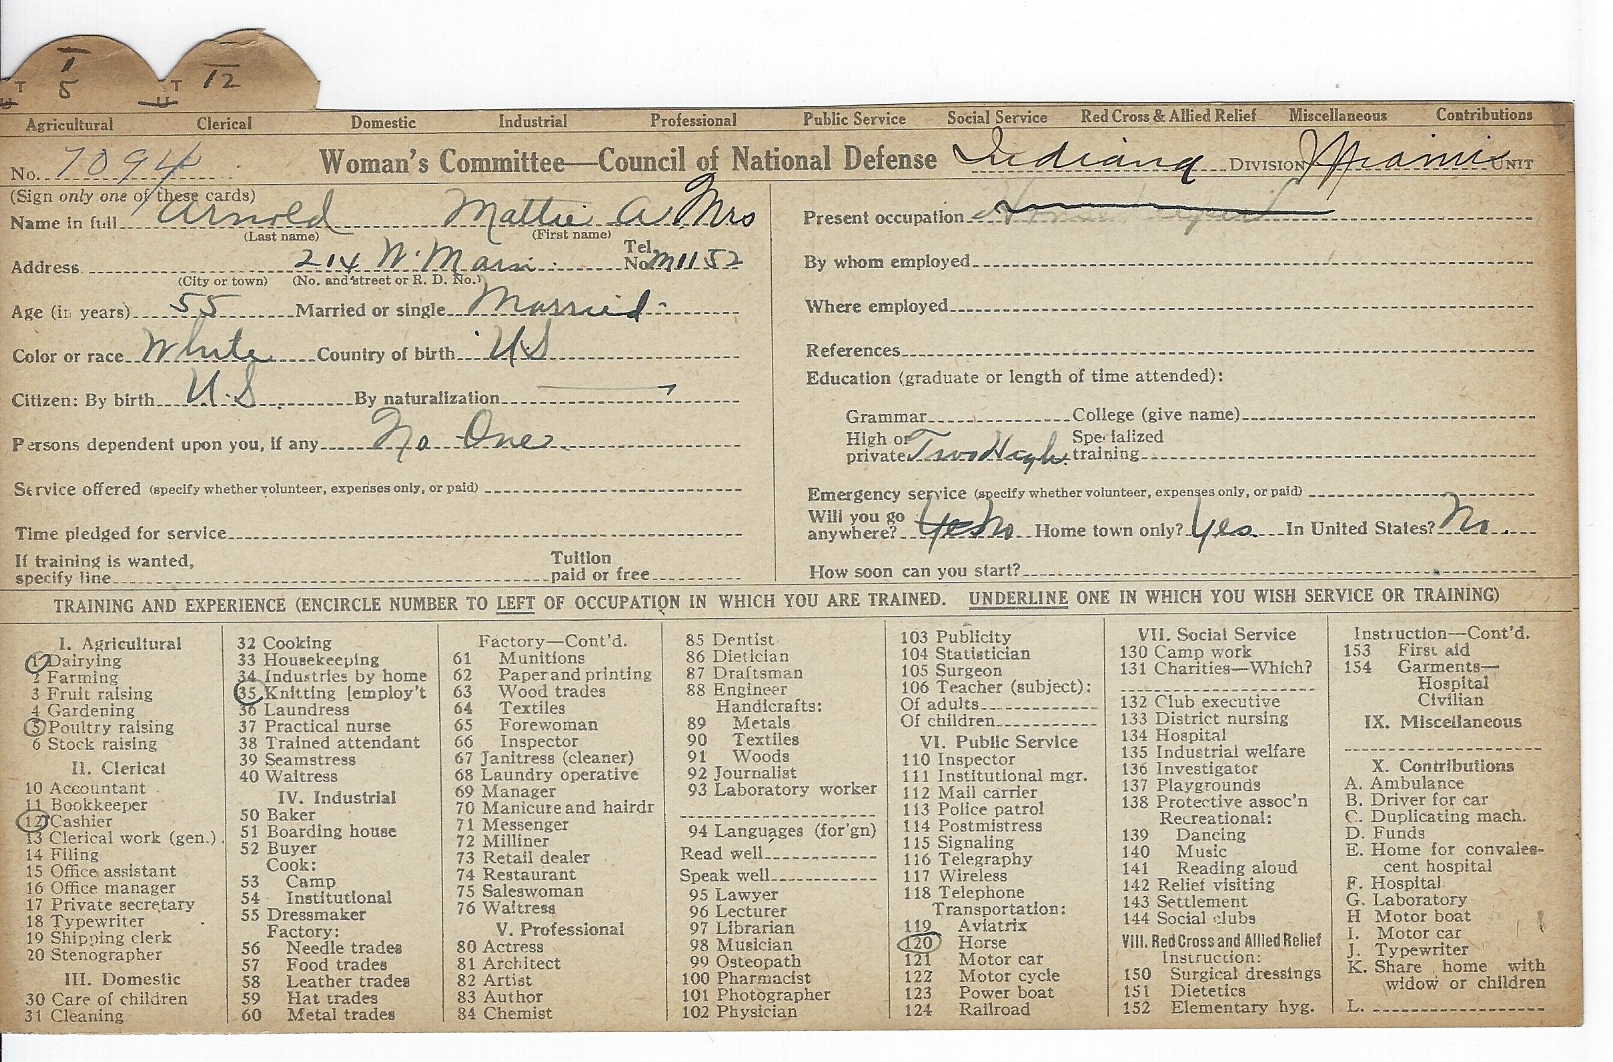 1 5 T 12 T
Agricultural Clerical Domestic Industrial Professional Public Service Social Service Red Cross & Allied Relief Miscellaneous Contributions
No. 7094 Woman's Committee—Council of National Defense Indiana DIVISION Miami UNIT
(Sign only one of these cards)
Name in full Arnold Mattie A Mrs
(Last name) (First name)
Address 214 W. Main Tel. No. M1152
(City or town) (No. and street or R. D. No.)
Age (in years) 55 Married or single Married
Color or race White Country of birth U.S
Citizen: By birth U.S. By naturalization
Persons dependent upon you, if any No One
Service offered (specify whether volunteer, expenses only, or paid)
Time pledged for service
If training is wanted, specify line Tuition paid or free
Present occupation
By whom employed
Where employed
References
Education (graduate or length of time attended):
Grammar College (give name)
High or private Two High Specialized training
Emergency service (specify whether volunteer, expenses only, or paid)
Will you go anywhere? Yes No Home town only? Yes In United States? No.
How soon can you start?
TRAINING AND EXPERIENCE (ENCIRCLE NUMBER TO LEFT OF OCCUPATION IN WHICH YOU ARE TRAINED. UNDERLINE ONE IN WHICH YOU WISH SERVICE OR TRAINING)
I. Agricultural
1 Dairying
2 Farming
3 Fruit raising
4 Gardening
5 Poultry raising
6 Stock raising
II. Clerical
10 Accountant
11 Bookkeeper
12 Cashier
13 Clerical work (gen.)
14 Filing
15 Office assistant
16 Office manager
17 Private secretary
18 Typewriter
19 Shipping clerk
20 Stenographer
III. Domestic
30 Care of children
31 Cleaning
32 Cooking
33 Housekeeping
34 Industries by home
35 Knitting [employ't
36 Laundress
37 Practical nurse
38 Trained attendant
39 Seamstress
40 Waitress
IV. Industrial
50 Baker
51 Boarding house
52 Buyer
Cook:
53 Camp
54 Institutional
55 Dressmaker
Factory:
56 Needle trades
57 Food trades
58 Leather trades
59 Hat trades
60 Metal trades
Factory—Cont'd.
61 Munitions
62 Paper and printing
63 Wood trades
64 Textiles
65 Forewoman
66 Inspector
67 Janitress (cleaner)
68 Laundry operative
69 Manager
70 Manicure and hairdr
71 Messenger
72 Milliner
73 Retail dealer
74 Restaurant
75 Saleswoman
76 Waitress
V. Professional
80 Actress
81 Architect
82 Artist
83 Author
84 Chemist
85 Dentist
86 Dietician
87 Draftsman
88 Engineer
Handicrafts:
89 Metals
90 Textiles
91 Woods
92 Journalist
93 Laboratory worker
94 Languages (for'gn)
Read well
Speak well
95 Lawyer
96 Lecturer
97 Librarian
98 Musician
99 Osteopath
100 Pharmacist
101 Photographer
102 Physician
103 Publicity
104 Statistician
105 Surgeon
106 Teacher (subject):
Of adults
Of children
VI. Public Service
110 Inspector
111 Institutional mgr.
112 Mail carrier
113 Police patrol
114 Postmistress
115 Signaling
116 Telegraphy
117 Wireless
118 Telephone
Transportation:
119 Aviatrix
120 Horse
121 Motor car
122 Motor cycle
123 Power boat
124 Railroad
VII. Social Service
130 Camp work
131 Charities—Which?
132 Club executive
133 District nursing
134 Hospital
135 Industrial welfare
136 Investigator
137 Playgrounds
138 Protective assoc'n
Recreational:
139 Dancing
140 Music
141 Reading aloud
142 Relief visiting
143 Settlement
144 Social clubs
VIII. Red Cross and Allied Relief
Instruction:
150 Surgical dressings
151 Dietetics
152 Elementary hyg.
Instruction—Cont'd.
153 First aid
154 Garments—
Hospital
Civilian
IX. Miscellaneous
X. Contributions
A. Ambulance
B. Driver for car
C. Duplicating mach.
D. Funds
E. Home for convales-
cent hospital
F. Hospital
G. Laboratory
H Motor boat
I. Motor car
J. Typewriter
K. Share home with
widow or children
L.